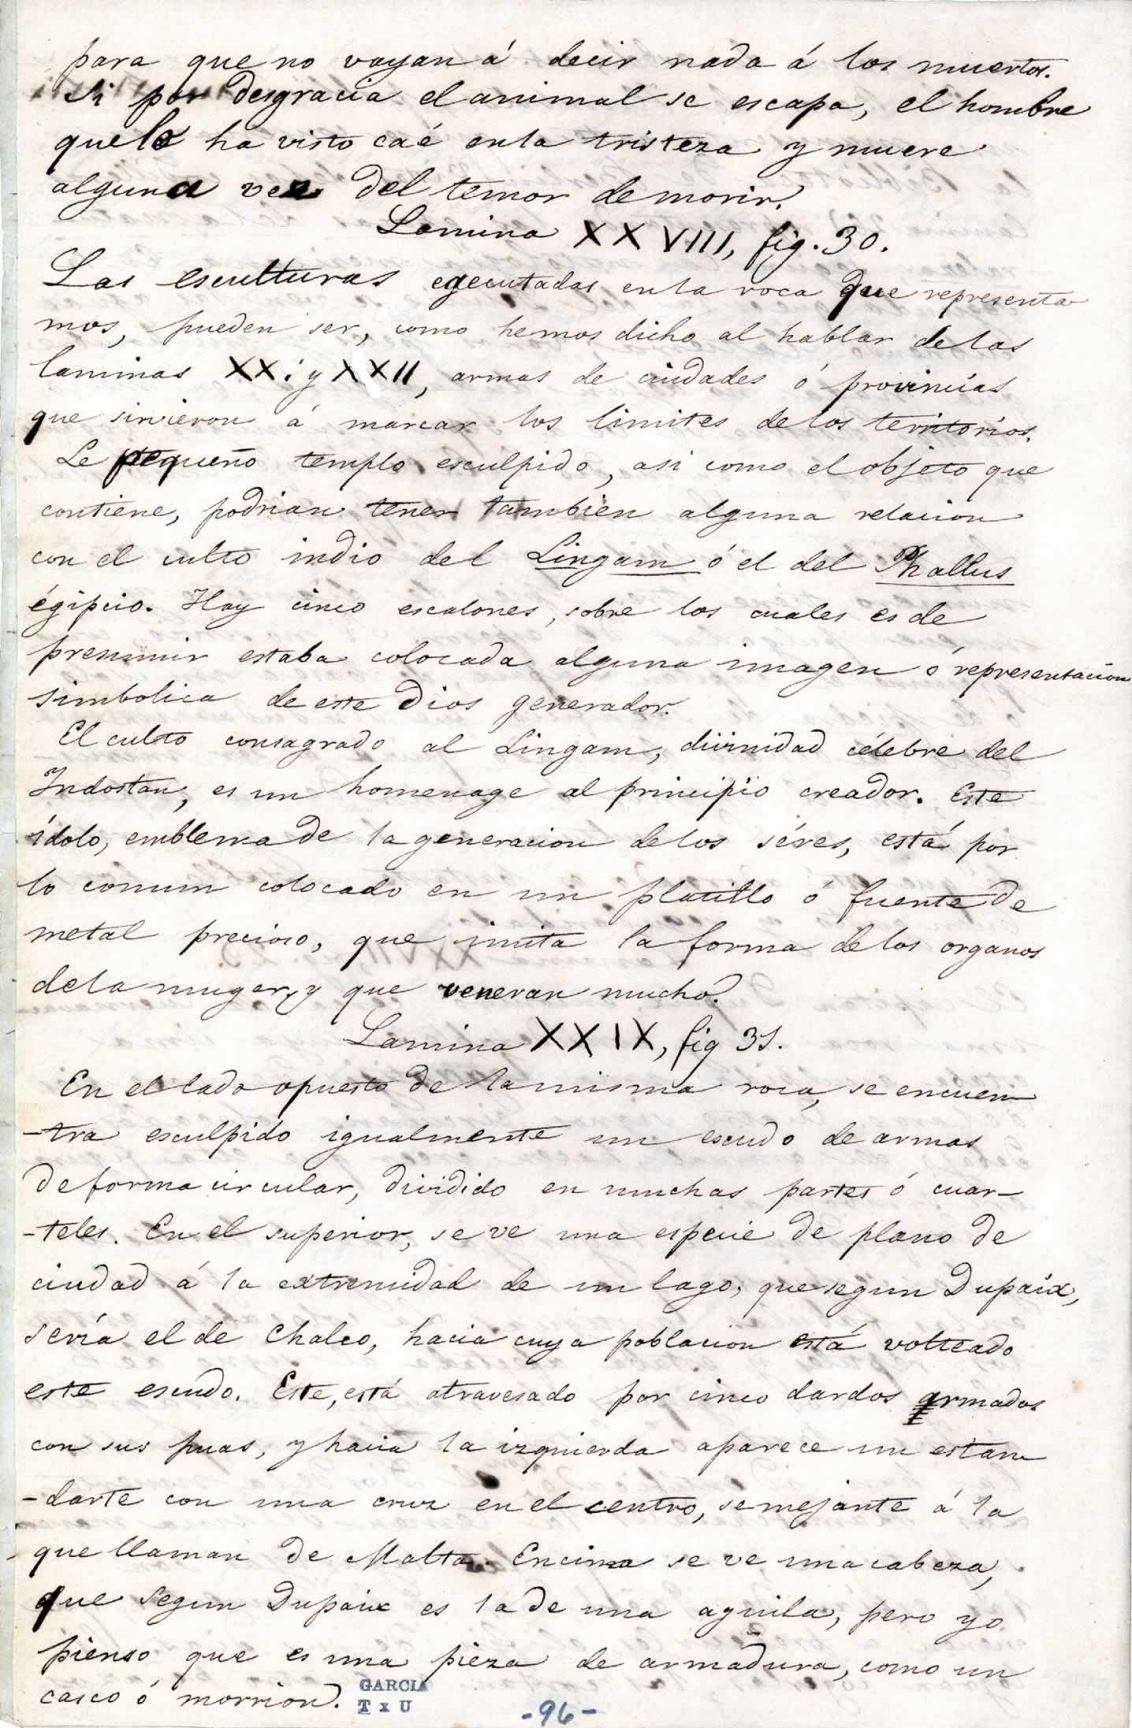 para que no vayan á decir nada á los muertos.
Si por desgracia el animal se escapa, el hombre
que lo ha visto caé en la tristeza y muere
alguna vez del temor de morir.
Lamina XXVIII, fig. 30.
Las esculturas egecutadas en la roca que representa
mos, pueden ser, como hemos dicho al hablar de las
laminas XXi y XXII, armas de ciudades ó provincias
que sirvieron á marcar los limites de los territorios.
Le pequeño templo esculpido, asi como el objeto que
contiene, podrian tener tambien alguna relacion
con el culto indio del Lingam ó el del Phallus
égipcio. Hay cinco escalones, sobre los cuales es de
presumir estaba colocada alguna imagen ó representacion
simbolica de este Dios generador.
El culto consagrado al Lingam, divinidad célebre del
Indostan, es un homenage al principio creador. Este
ídolo, emblema de la generacion de los séres, está por
lo comun colocado en un platillo ó fuente de
metal precioso, que imita la forma de los organos
de la muger, y que veneran mucho.
Lamina XXIX, fig 31.
En el lado opuesto de la misma roca, se encuen
-tra esculpido igualmente un escudo de armas
de forma circular, dividido en muchas partes ó cuar-
-teles. En el superior, se ve una especie de plano de
ciudad á la extremidad de un lago, que segun Dupaix,
sería el de Chalco, hacia cuya poblacion está volteado
este escudo. Este, está atravesado por cinco dardos armados
con sus puas, y hacia la izquierda aparece un estan
-darte con una cruz en el centro, semejante á la
que llaman de Malta. Encima se ve una cabeza,
que segun Dupaix es la de una aguila, pero yo
pienso que es una pieza de armadura, como un
casco ó morrion.
GARCIA
T x U
-96-